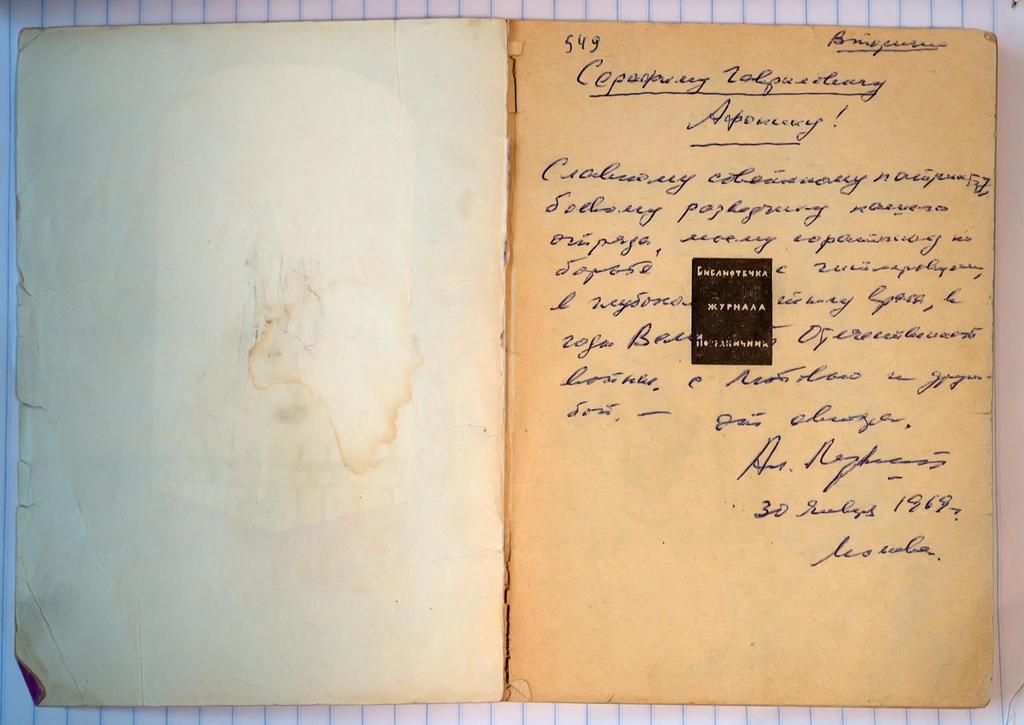 549
Серафиму Гавриловичу
Афонину!
Славному советскому патриоту,
боевому разведчику нашего
отряда, моему соратнику по
борьбе с гитлеровцами,
в глубоком тылу врага, в
годы Великой Отечественной
войны, с любовью и друж-
бой. —
от автора.
Ал.
30 января 1969 г.
Москва.
БИБЛИОТЕЧКА
ЖУРНАЛА
ПОГРАНИЧНИК